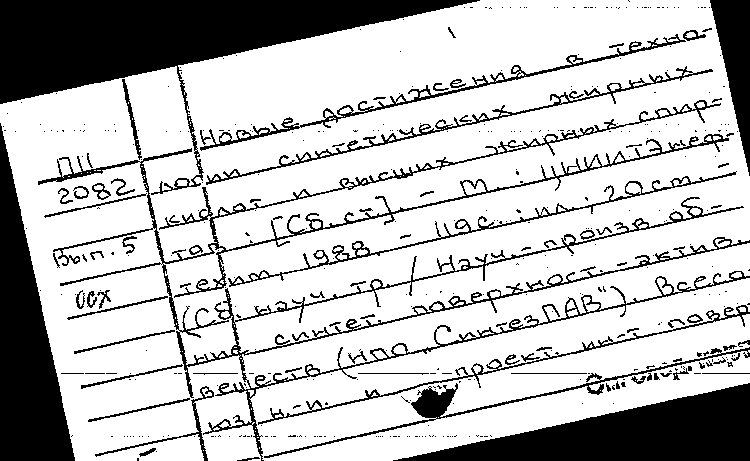 Новые достижения в техно-
П11
логии синтетических жирных
2082
кислот и высших жирных спир-
Вып. 5
тов : [Сб. ст]. – М. : ЦНИИТЭнеф-
осх
техим, 1988. – 119 с. : ил. ; 20 см. –
(Сб. науч. тр. / Науч.-произв об-
ние синтет. поверхност.-актив.
веществ (НПО „СинтезПАВ"). Всесо-
юз. н.-и. и проект. ин-т повер